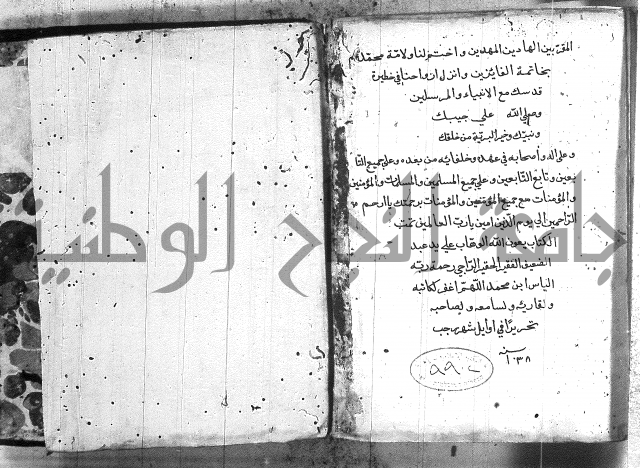 المقربين الهادين المهديين واختم لنا ولامة محمد
بخاتمة الفائزين وانزل ارواحنا في حظيرة
قدسك مع الانبياء والمرسلين
وصلي الله علي حبيبك
ونبيك وخير البرية من خلقك
وعلي اله واصحابه في عهده وخلفائه من بعده وعلي جميع التا
بعين وتابع التابعين وعلي جميع المسلمين والمسلمات والمؤمنين
والمؤمنات مع جميع المؤمنين والمؤمنات برحمتك يا ارحم
الراحمين الي يوم الدين امين يا رب العالمين تمت
الكتاب بعون الله الوهاب علي يد عبد
الضعيف الفقير الحقير الراجي رحمة ربه
الياس ابن محمد اللهم اغفر لكاتبه
ولقاريه ولسامعه ولصاحبه
تحريرا في اوايل شهر رجب
سنه
١٠٣٨
جامعة النجاح الوطنية